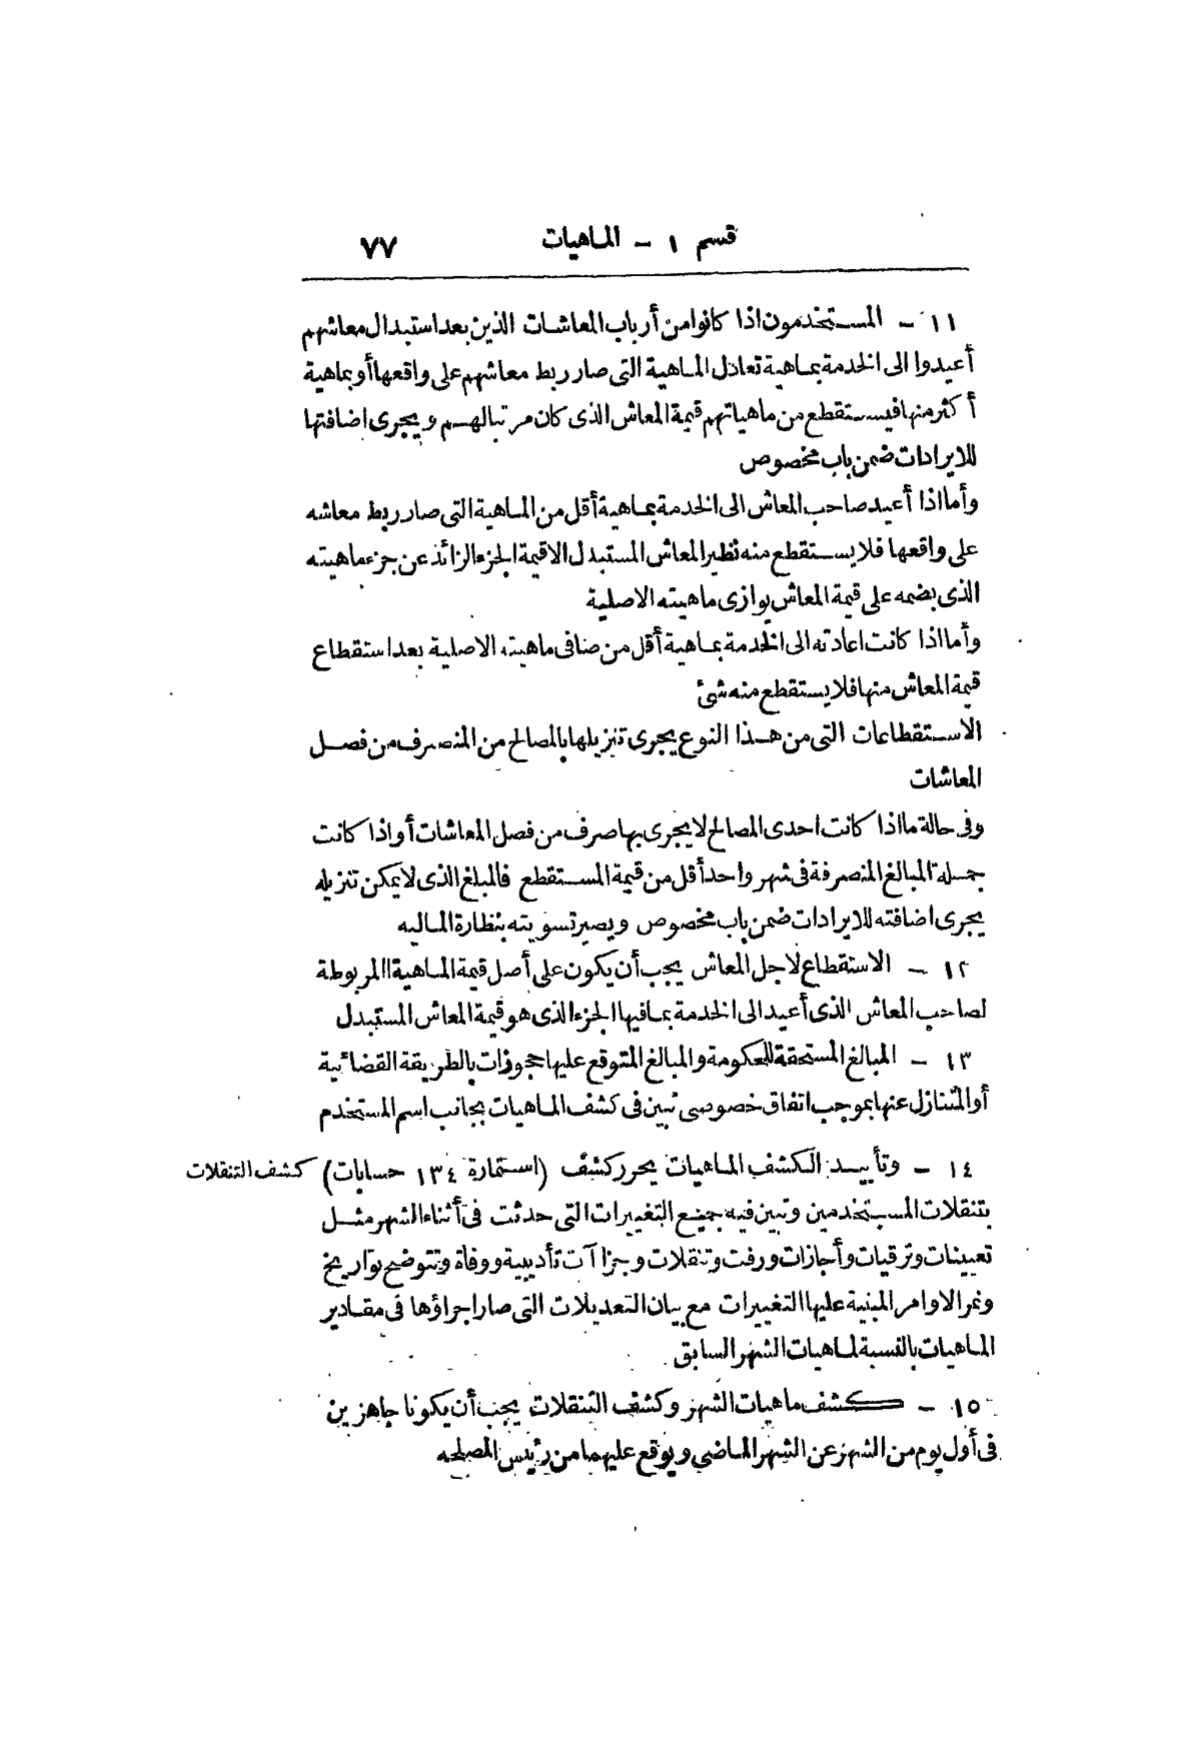 قسم ١ - الماهيات ٧٧
١١ - المستخدمون اذا كانوا من أرباب المعاشات الذين بعد استبدال معاشهم
أعيدوا الى الخدمة بماهية تعادل الماهية التى صار ربط معاشهم على واقعها أو بماهية
أكثر منها فيستقطع من ماهياتهم قيمة المعاش الذى كان مرتبا لهم ويجرى اضافتها
للايرادات ضمن باب مخصوص
وأما اذا أعيد صاحب المعاش الى الخدمة بماهية أقل من الماهية التى صار ربط معاشه
على واقعها فلا يستقطع منه نظير المعاش المستبدل الا قيمة الجزء الزائد عن جزء ماهيته
الذى بضمه على قيمة المعاش يوازى ماهيته الاصلية
وأما اذا كانت اعادته الى الخدمة بماهية أقل من صافى ماهيته الاصلية بعد استقطاع
قيمة المعاش منها فلا يستقطع منه شئ
الاستقطاعات التى من هذا النوع يجرى تنزيلها بالمصالح من المنصرف من فصل
المعاشات
وفى حالة ما اذا كانت احدى المصالح لا يجرى بها صرف من فصل المعاشات أو اذا كانت
جملة المبالغ المنصرفة فى شهر واحد أقل من قيمة المستقطع فالمبلغ الذى لا يمكن تنزيله
يجرى اضافته للايرادات ضمن باب مخصوص ويصير تسويته بنظارة الماليه
١٢ - الاستقطاع لاجل المعاش يجب أن يكون على أصل قيمة الماهية المربوطة
لصاحب المعاش الذى أعيد الى الخدمة بما فيها الجزء الذى هو قيمة المعاش المستبدل
١٣ - المبالغ المستحقة للحكومة والمبالغ المتوقع عليها حجوزات بالطريقة القضائية
أو المتنازل عنها بموجب اتفاق خصوصى تبين فى كشف الماهيات بجانب اسم المستخدم
١٤ - وتأييد الكشف الماهيات يحرر كشف (استمارة ١٣٤ حسابات) كشف التنقلات
بتنقلات المستخدمين وتبين فيه جميع التغييرات التى حدثت فى أثناء الشهر مثل
تعيينات وترقيات وأجازات ورفت وتنقلات وجزاآت تأديبية ووفاة وتتوضح تواريخ
ونمر الاوامر المبنية عليها التغييرات مع بيان التعديلات التى صار اجراؤها فى مقادير
الماهيات بالنسبة لماهيات الشهر السابق
١٥ - كشف ماهيات الشهر وكشف التنقلات يجب أن يكونا جاهزين
فى أول يوم من الشهر عن الشهر الماضي ويوقع عليهما من رئيس المصلحه